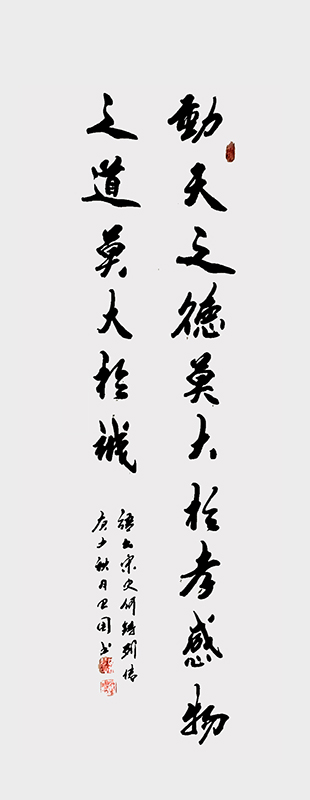 動天之德莫大於孝感物
之道莫大於誠
語出宋史何鑄列傳
庚子秋月卫国书